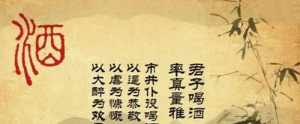 酒
君子喝酒
率真量雅
市井仆役喝酒
以逞为恭敬
以虐为慷慨
以大醉为欢